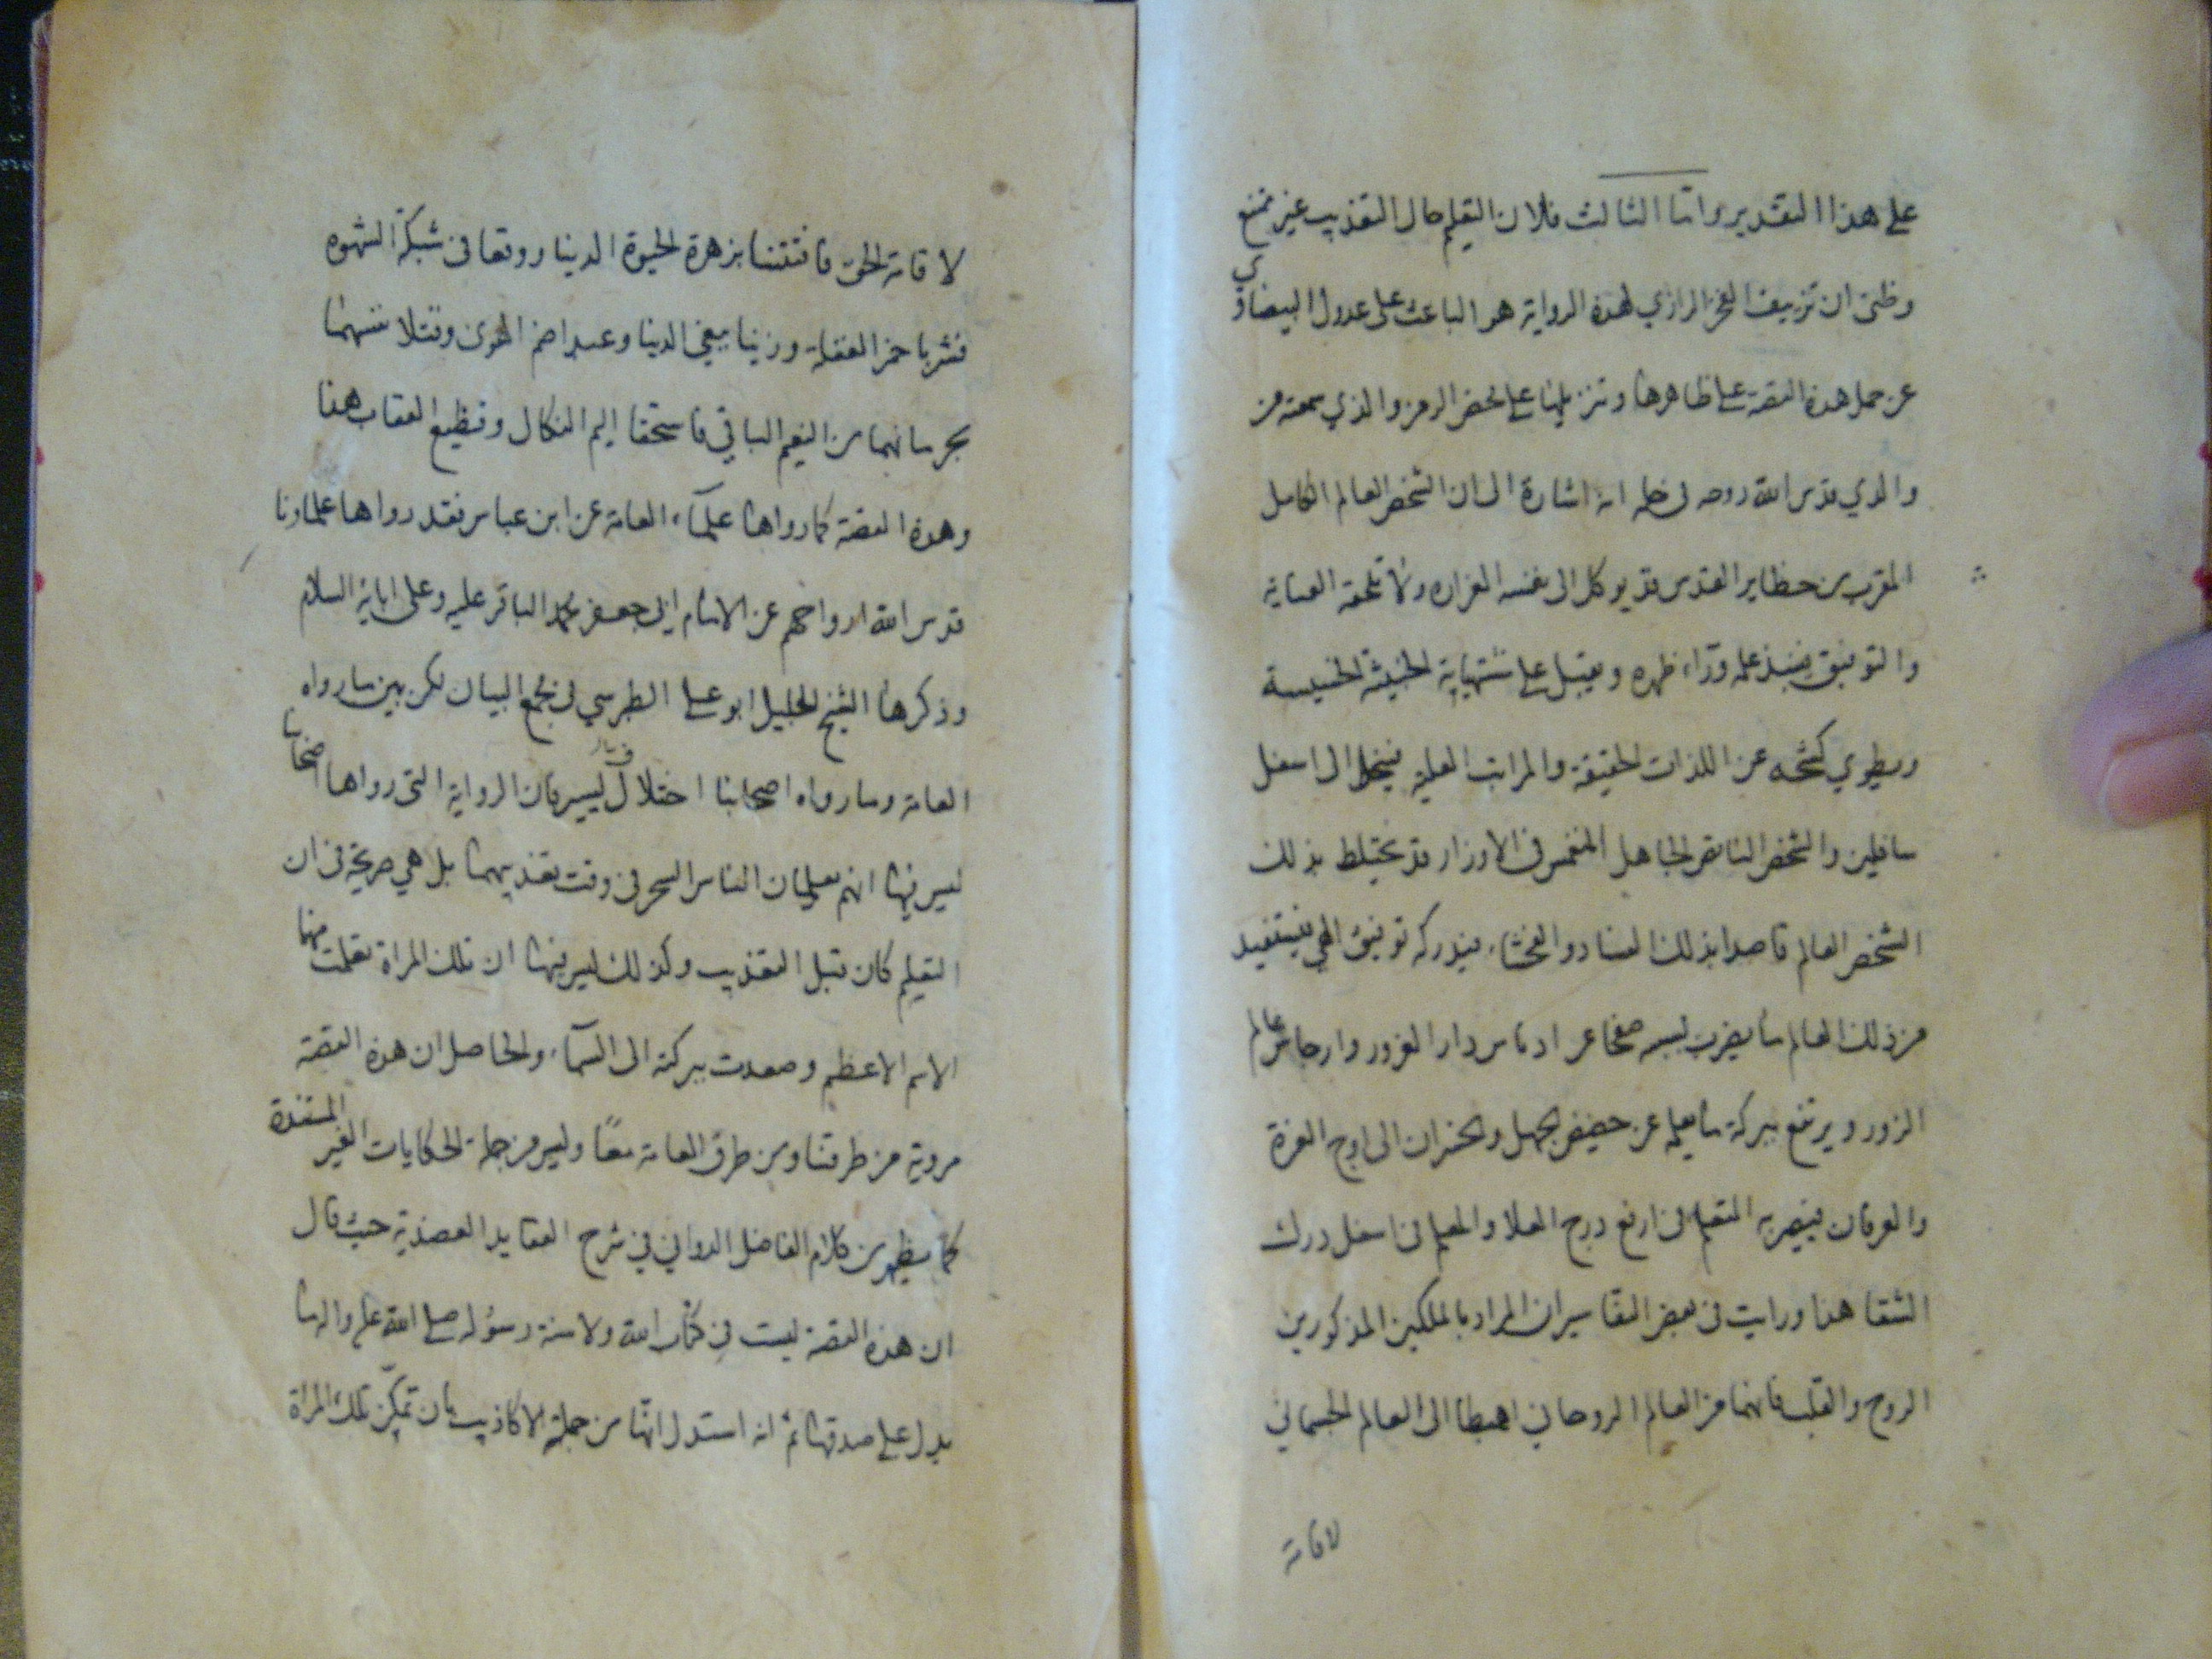 على هذا التقدير واما الثالث فلان التعليم حال التعذيب غير ممتنع
وظنى ان تزييف الفخر الرازي لهذه الرواية هو الباعث على عدول البيضاوي
عن حمل هذه القصة على ظاهرها وتنزيلها على محض الرمز والذي سمعته من
والدي قدس الله روحه في حله انه اشارة الى ان الشخص العالم الكامل
المقرب من حظاير القدس قد يوكل الى نفسه الغراره ولا تلحقه العناية
والتوفيق فينبذ علمه وراء ظهره ويقبل على مشتهياته الخبيثة الخسيسة
ويطوي كشحه عن اللذات الحقيقة والمراتب العلية فينحط الى اسفل
سافلين والشخص الناقص الجاهل المنغمس في الاوزار قد يختلط بذلك
الشخص العالم قاصدا بذلك الفساد والفحشاء فيدركه توفيق الهي فيستفيد
من ذلك العالم ما يضرب بسببه صفحا عن ادناس دار الغرور وارجاس عالم
الزور ويرتفع ببركة ما تعلمه عن حضيض الجهل والخسران الى اوج العزة
والعرفان فيصير به المتعلم في ارفع درج العلا والمعلم في اسفل درك
الشقا هذا ورايت في بعض التفاسير ان المراد بالملكين المذكورين
الروح والقلب فانهما من العالم الروحاني اهبطا الى العالم الجسماني
لاقامة
لاقامة الحق فافتتنا بزهرة الحيوة الدنيا ووقعا في شبكة الشهوه
فشربا خمر الغفلة وزنيا ببغي الدنيا وعبدا صنم الهوى وقتلا نفسهما
بحرمانهما من النعيم الباقي فاستحقا اليم النكال وفظيع العقاب هذا
وهذه القصة كما رواها علماء العامة عن ابن عباس فقد رواها علماؤنا
قدس الله ارواحهم عن الامام ابي جعفر محمد الباقر عليه وعلى ابائه السلام
وذكرها الشيخ الجليل ابو على الطبرسي في مجمع البيان لكن بين ما رواه
العامة وما رواه اصحابنا اختلاف يسير فان الرواية التى رواها اصحابنا
ليس فيها انهم يعلمان الناس السحر في وقت تعذيبهما بل هي صريحة في ان
التعليم كان قبل التعذيب وكذلك ليس فيها ان تلك المراة تعلمت منهما
الاسم الاعظم وصعدت ببركته الى السماء والحاصل ان هذه القصة
مروية من طرقنا ومن طرق العامة معًا وليس من جملة الحكايات الغير المستندة
كما يظهر من كلام الفاضل الدواني في شرح العقايد العضدية حيث قال
ان هذه القصة ليست في كتاب الله ولا سنة رسوله صلى الله عليه واله ما
يدل على صدقها ثم انه استدل انها من جملة الاكاذيب بان تمكن تلك المراة